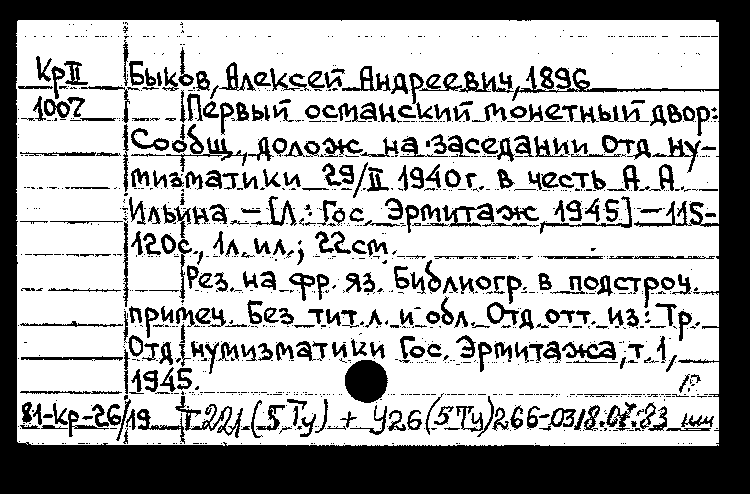 Кр II Быков, Алексей Андреевич, 1896
1007 Первый османский монетный двор:
Сообщ., долож. на заседании Отд. ну-
мизматики 29/II 1940г. в честь А. А.
Ильина. – [Л.: Гос. Эрмитаж, 1945] – 115-
120с., 1л. ил.; 22см.
Рез. на фр. яз. Библиогр. в подстроч.
примеч. Без тит. л. и обл. Отд. отт. из: Тр.
Отд. нумизматики Гос. Эрмитажа, т. 1,
1945.
81-Кр-26/19 Т221(5Ту) + У26(5Ту)266-03